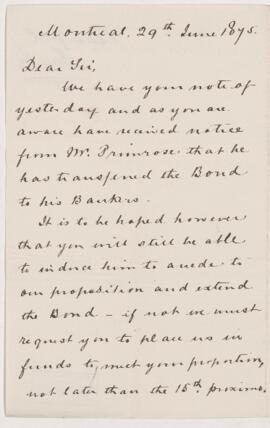 Montreal, 29th June 1875.
Dear Sir,
We have your note of
yesterday and as you are
aware have received notice
from Mr. Primrose that he
has transferred the Bond
to his Bankers.
It is to be hoped however
that you will still be able
to induce him to accede to
our proposition and extend
the Bond – if not we must
request you to place us in
funds to meet your proportion,
not later than the 15th proximo.